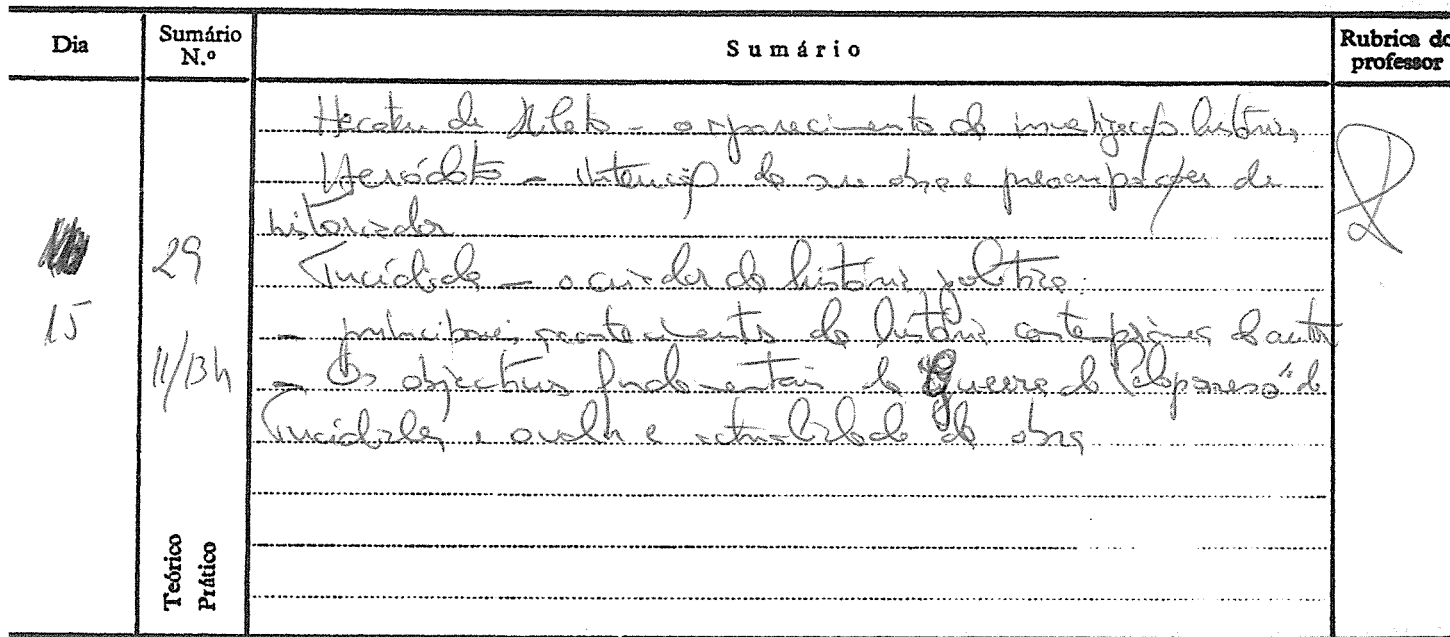 Dia
Sumário N.º
Sumário
Rubrica do professor
15
29
11/13h
Hecateu de Mileto - o aparecimento da investigação histórica
Heródoto - intenção da sua obra e preocupações de
historiador
Tucídides - o criador da história política:
- principais acontecimentos da história contemporânea do autor
- Os objectivos fundamentais da "Guerra do Peloponeso" de
Tucídides, o valor e actualidade da obra
Teórico
Prático